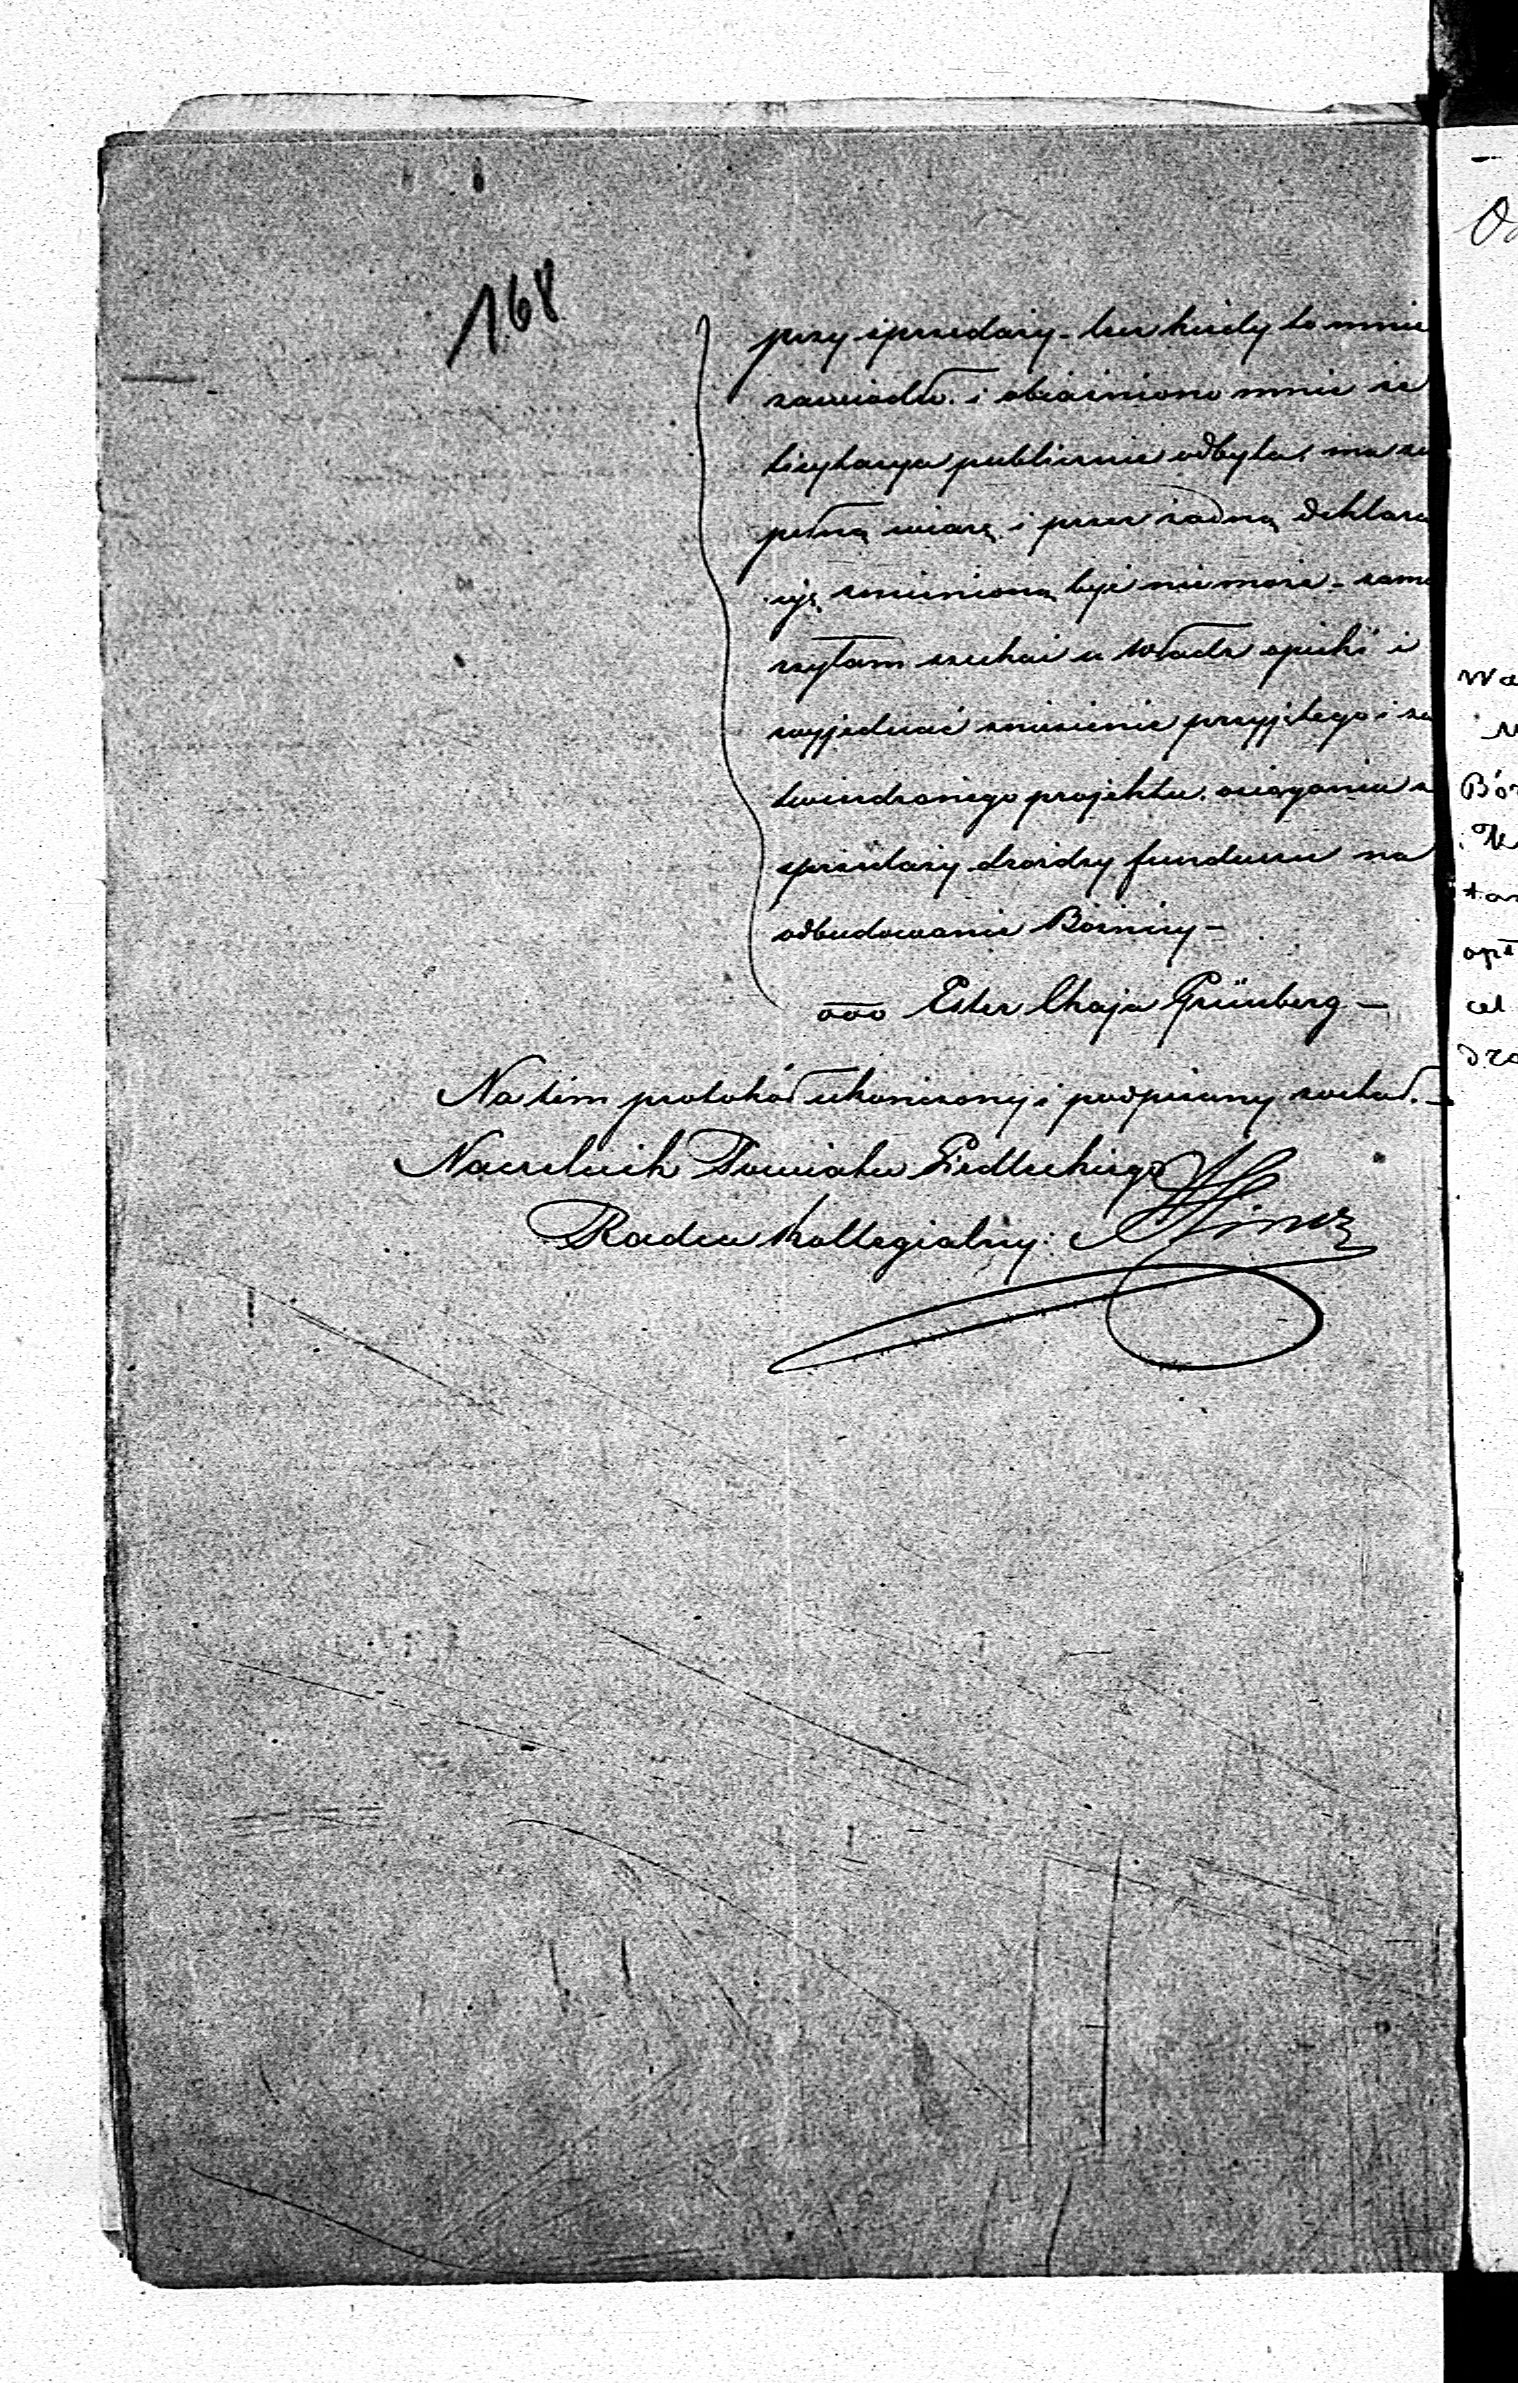 168
przy sprzedaży – lecz kiedy to mnie
zawiodło i obiaśniono mnie że
licytacya publicznie odbyta, ma zu
pełną wiarę i przez żadną deklara
cyę zmienioną być nie może – zamie
rzyłam szukać u Władz opieki i
wyjednać zniesienie przyjętego i za
twierdzonego projektu osiągania z
sprzedaży drożdży funduszu na
odbudowanie Bóżnicy –
ooo Ester Chaja Grünberg –
Na tém protokół ukończony i podpisany został. –
Naczelnik Powiatu Siedleckiego
Radca Kollegialny: